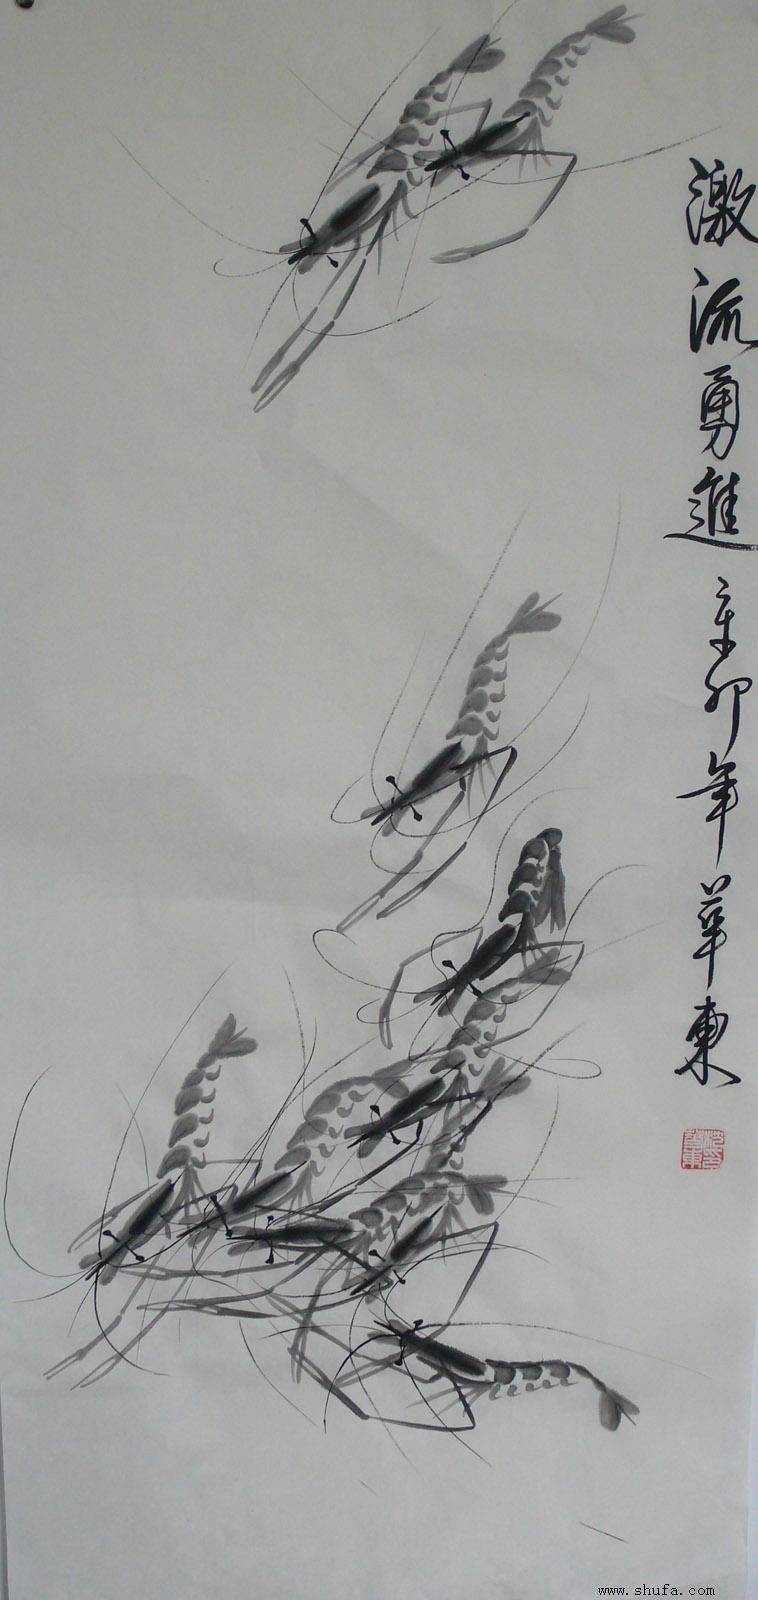 激流勇進 辛卯年華東
www.shufa.com